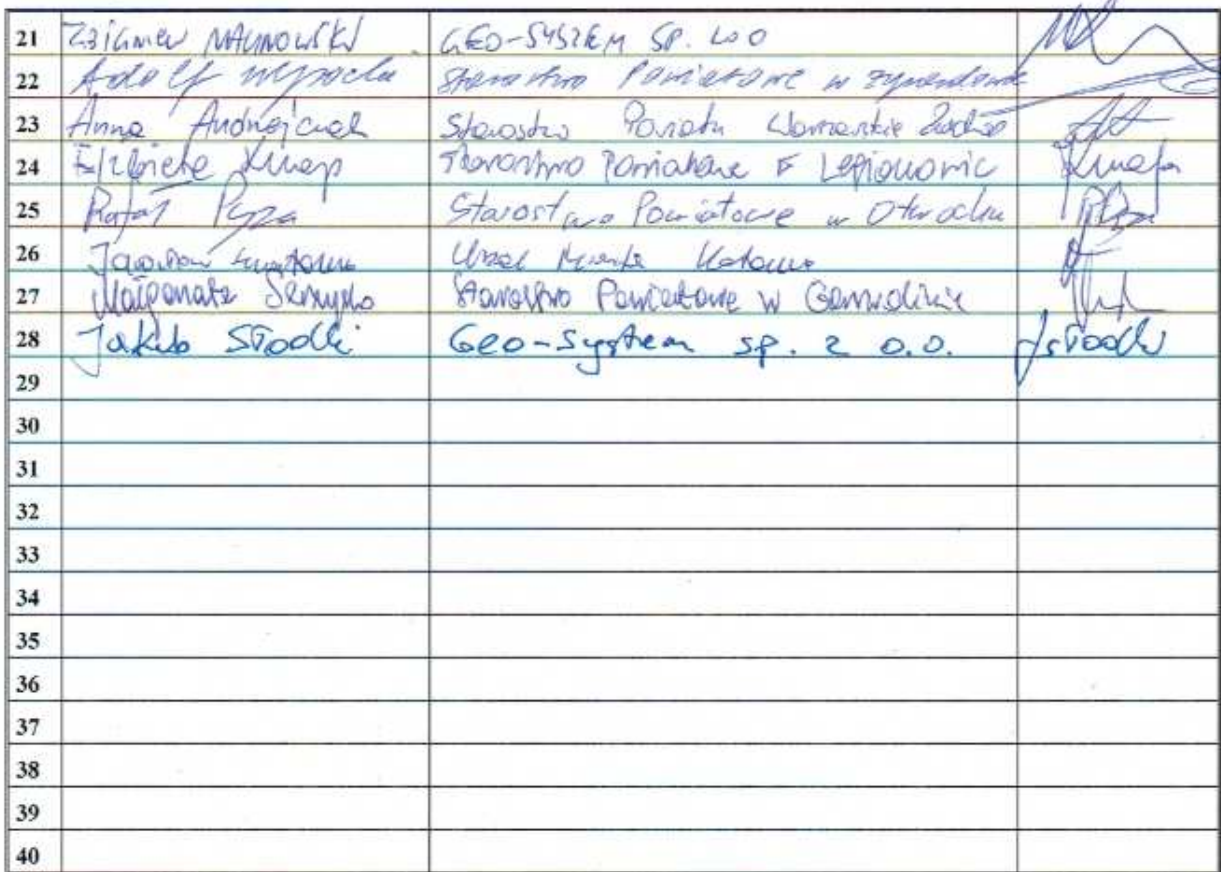 21 Zbigniew MALINOWSKI GEO-SYSTEM SP. ZOO
22 Adolf Starostwo Powiatowe w Żyrardowie
23 Anna Andrzejczak Starostwo Powiatu Warszawskie Zachod
24 Elżbieta Knap Starostwo Powiatowe w Legionowie Knap
25 Rafał Pyza Starostwo Powiatowe w Otwocku
26 Jarosław Urząd Miasta
27 Małgorzata Starostwo Powiatowe w Garwolinie
28 Jakub Słodki Geo-System sp. z o.o. JSłodki
29
30
31
32
33
34
35
36
37
38
39
40